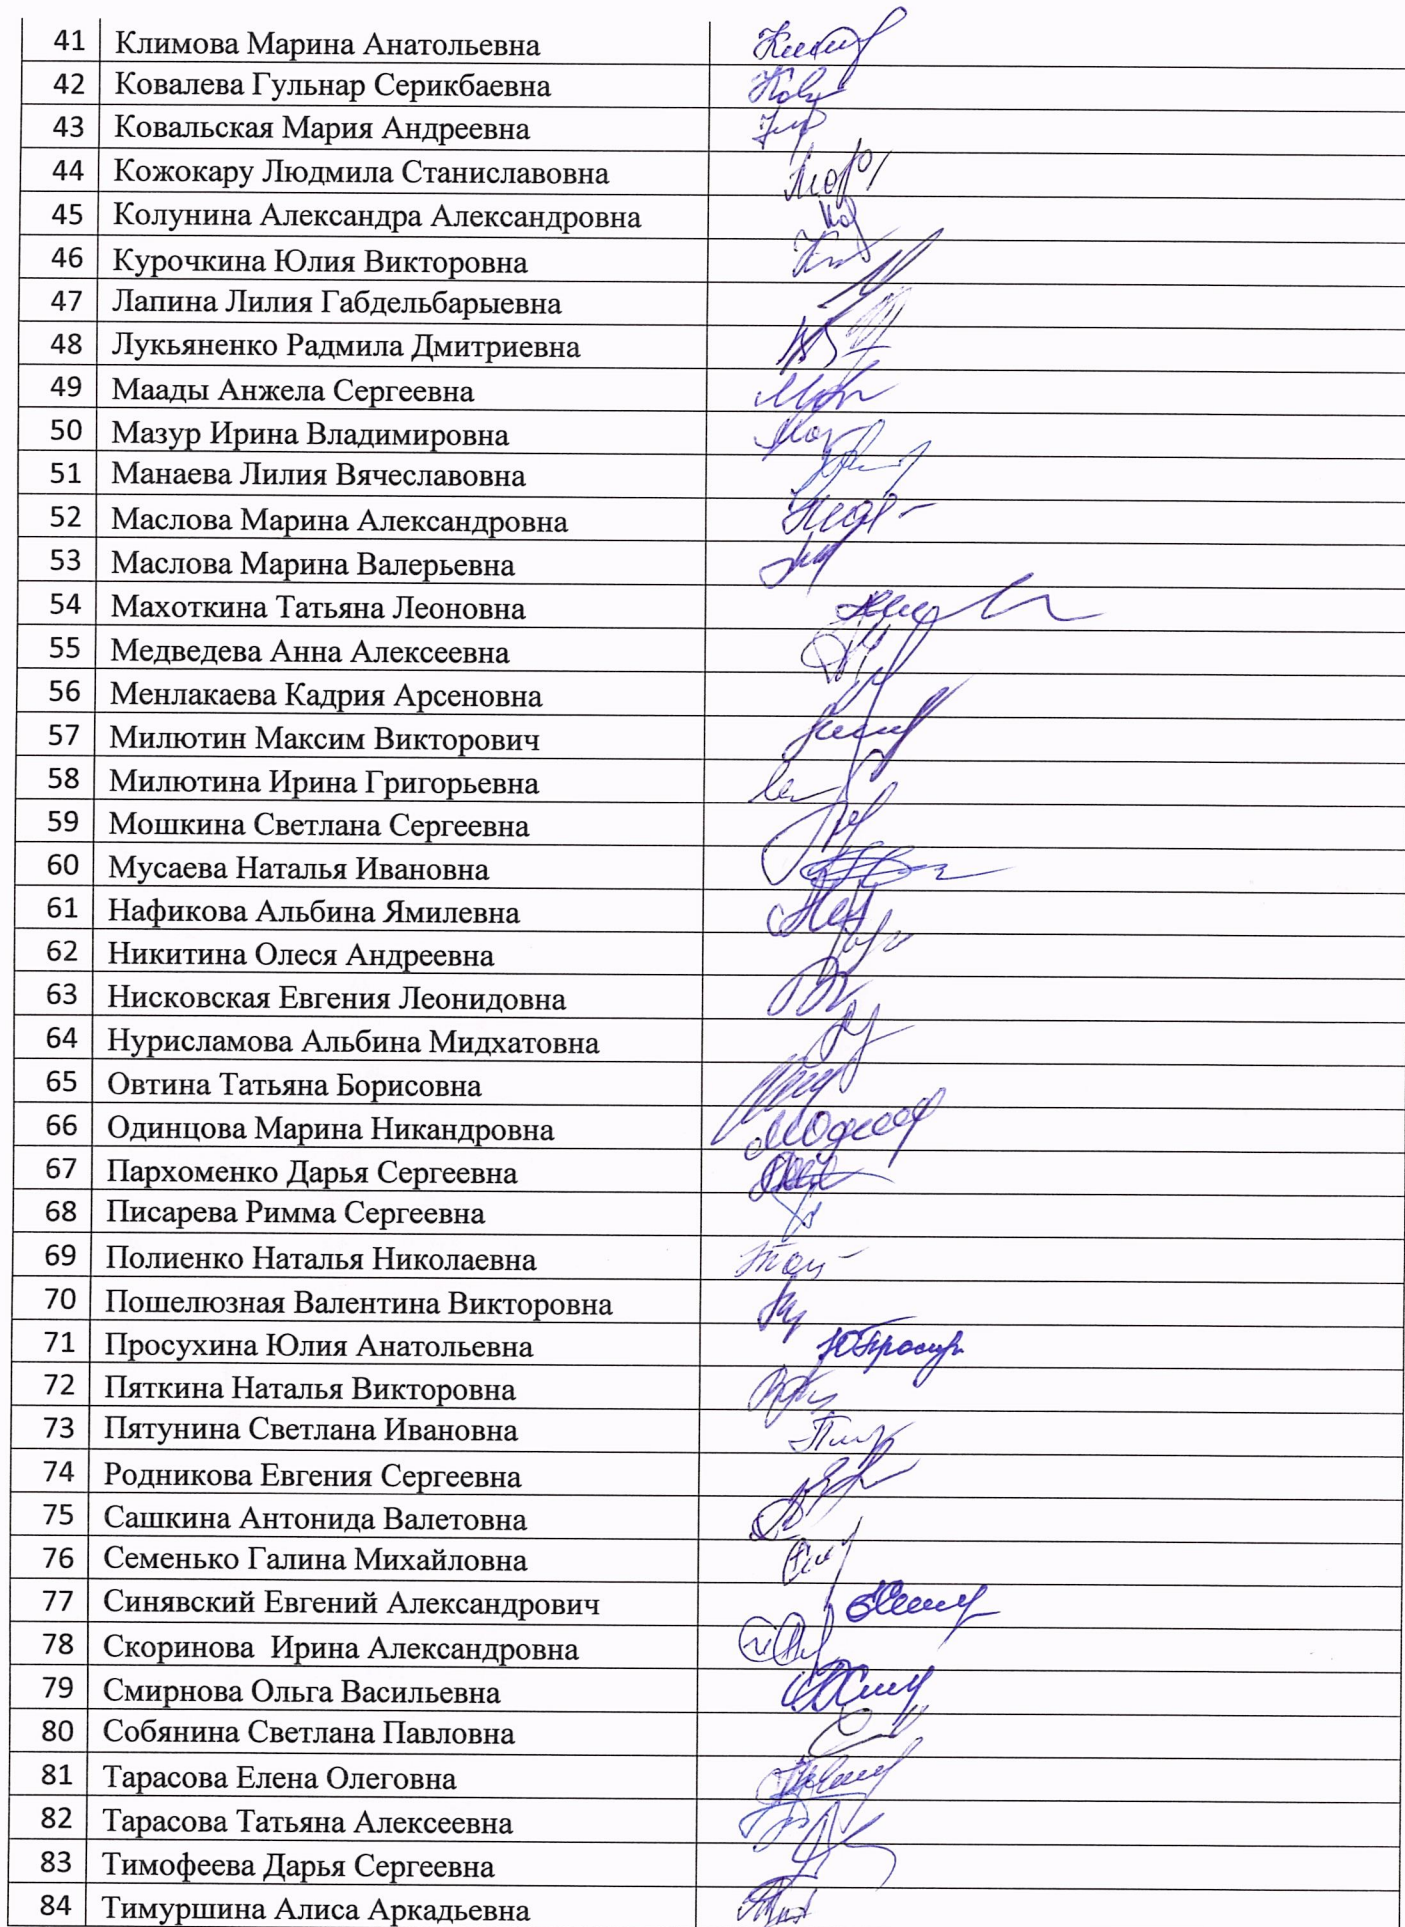 41 Климова Марина Анатольевна
42 Ковалева Гульнар Серикбаевна
43 Ковальская Мария Андреевна
44 Кожокару Людмила Станиславовна
45 Колунина Александра Александровна
46 Курочкина Юлия Викторовна
47 Лапина Лилия Габдельбарыевна
48 Лукьяненко Радмила Дмитриевна
49 Маады Анжела Сергеевна
50 Мазур Ирина Владимировна
51 Манаева Лилия Вячеславовна
52 Маслова Марина Александровна
53 Маслова Марина Валерьевна
54 Махоткина Татьяна Леоновна
55 Медведева Анна Алексеевна
56 Менлакаева Кадрия Арсеновна
57 Милютин Максим Викторович
58 Милютина Ирина Григорьевна
59 Мошкина Светлана Сергеевна
60 Мусаева Наталья Ивановна
61 Нафикова Альбина Ямилевна
62 Никитина Олеся Андреевна
63 Нисковская Евгения Леонидовна
64 Нурисламова Альбина Мидхатовна
65 Овтина Татьяна Борисовна
66 Одинцова Марина Никандровна
67 Пархоменко Дарья Сергеевна
68 Писарева Римма Сергеевна
69 Полиенко Наталья Николаевна
70 Пошелюзная Валентина Викторовна
71 Просухина Юлия Анатольевна
72 Пяткина Наталья Викторовна
73 Пятунина Светлана Ивановна
74 Родникова Евгения Сергеевна
75 Сашкина Антонида Валетовна
76 Семенько Галина Михайловна
77 Синявский Евгений Александрович
78 Скоринова Ирина Александровна
79 Смирнова Ольга Васильевна
80 Собянина Светлана Павловна
81 Тарасова Елена Олеговна
82 Тарасова Татьяна Алексеевна
83 Тимофеева Дарья Сергеевна
84 Тимуршина Алиса Аркадьевна